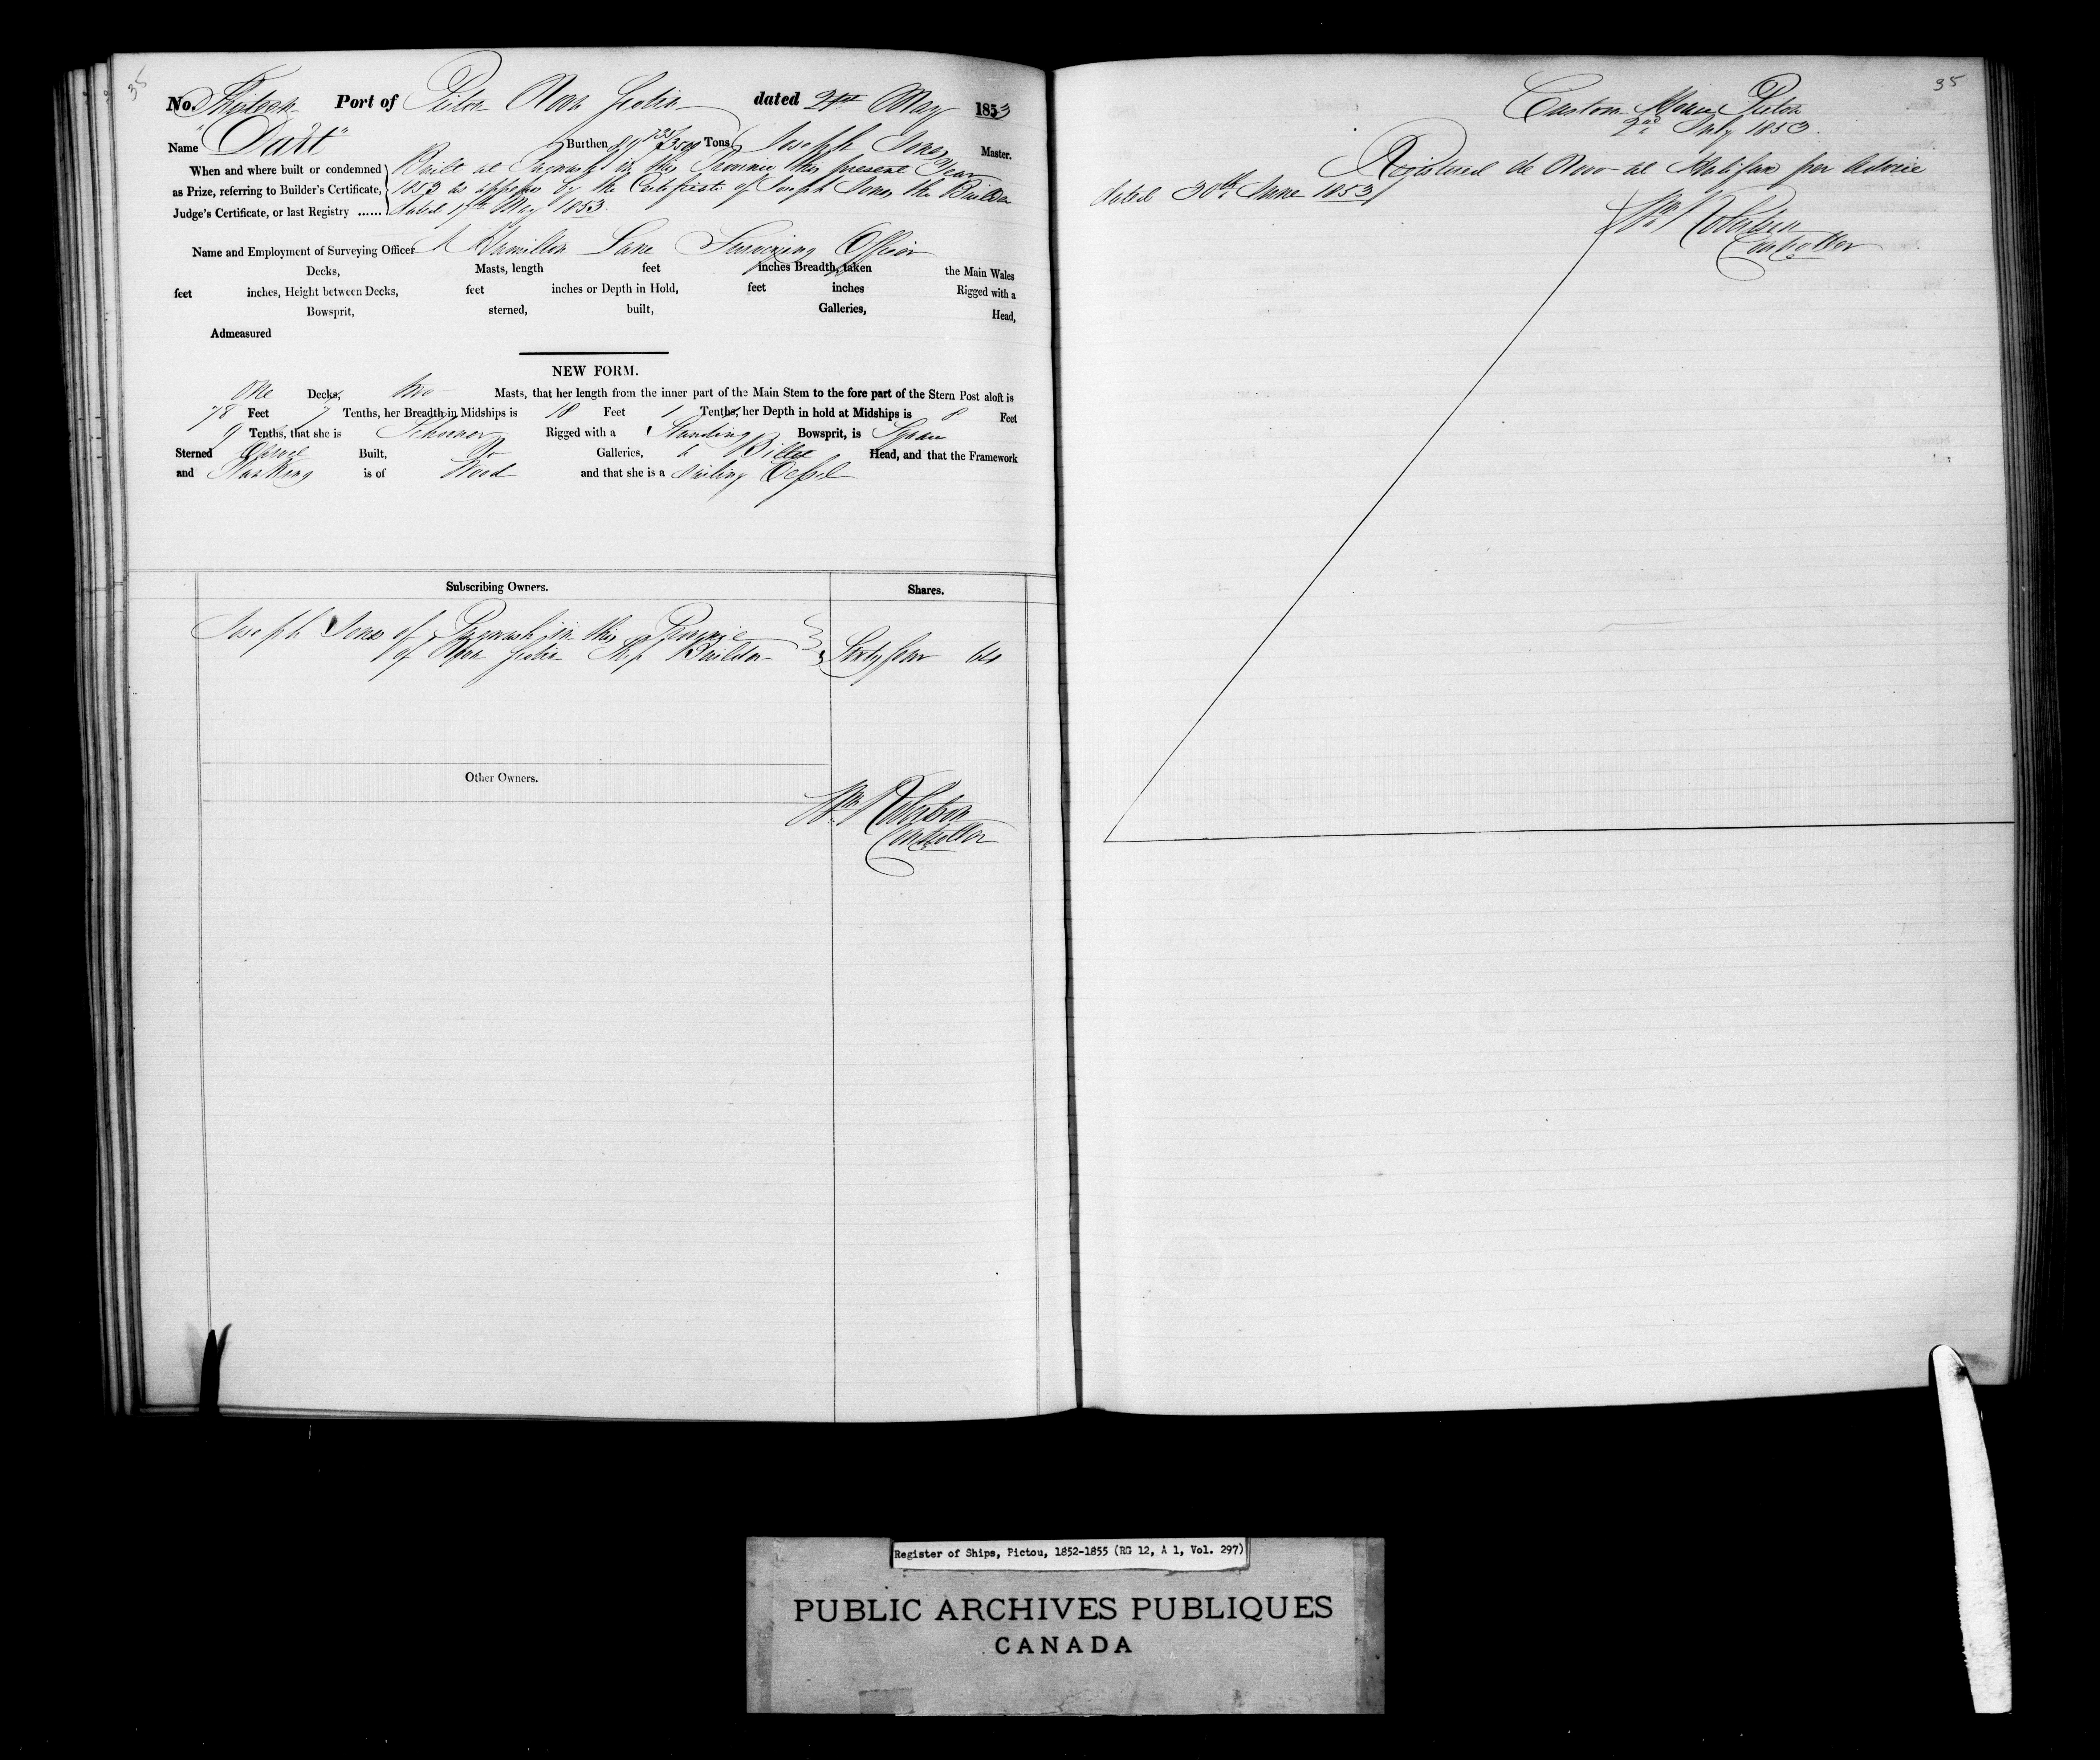 35
No. Thirteen Port of Pictou Nova Scotia dated 21st May 1853
Name "Dart" Burthen Tons, Joseph Jones Master.
When and where built or condemned Built at Pugwash in this Province this present Year
as Prize, referring to Builder's Certificate, 1853 as appears by the Certificate of Joseph Jones the Builder
Judge's Certificate, or last Registry ...... dated 17th May 1853.
Name and Employment of Surveying Officer Hamilton Lane Surveying Officer
Decks, Masts, length feet inches Breadth, taken the Main Wales
feet inches, Height between Decks, feet inches or Depth in Hold, feet inches Rigged with a
Bowsprit, sterned, built, Galleries, Head,
Admeasured
NEW FORM.
One Decks, two Masts, that her length from the inner part of the Main Stem to the fore part of the Stern Post aloft is
78 Feet 7 Tenths, her Breadth in Midships is 18 Feet 1 Tenths, her Depth in hold at Midships is 8 Feet
9 Tenths, that she is Schooner Rigged with a Standing Bowsprit, is Square
Sterned Carvel Built, No Galleries, & Billet Head, and that the Framework
and Planking is of Wood and that she is a Sailing Vessel
Subscribing Owners. Shares.
Joseph Jones of Pugwash in this Province
of Nova Scotia Ship Builder Sixty four 64
Other Owners.
Wm Robertson
Controller
35
Custom House Pictou
2nd July 1853.
Registered de Novo at Halifax per Advice
dated 30th June 1853
Wm Robertson
Controller
Register of Ships, Pictou, 1852-1855 (RG 12, A 1, Vol. 297)
PUBLIC ARCHIVES PUBLIQUES
CANADA